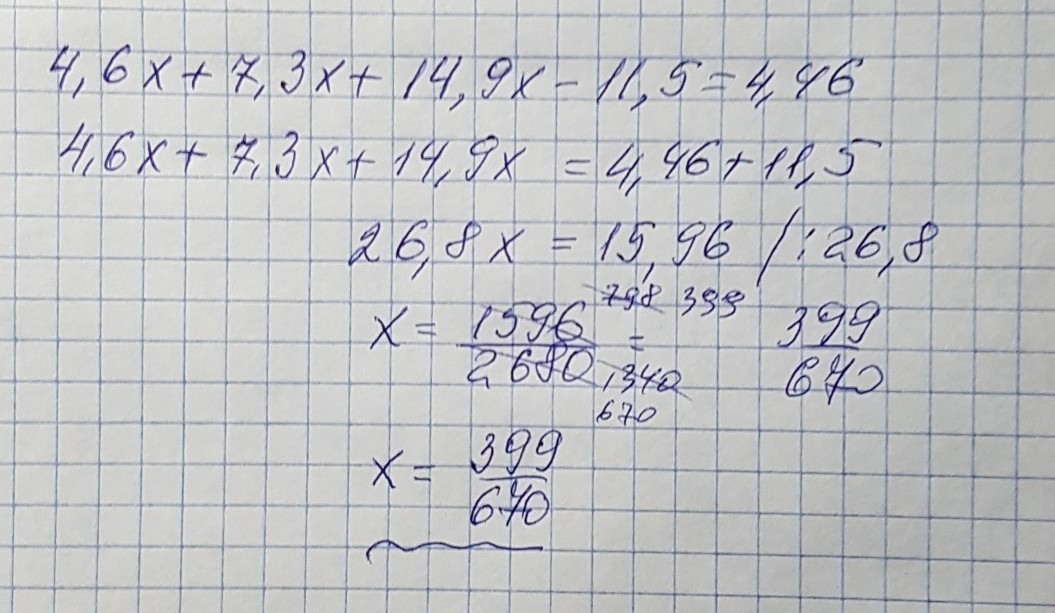 4,6x + 7,3x + 14,9x - 11,5 = 4,46
4,6x + 7,3x + 14,9x = 4,46 + 11,5
26,8x = 15,96 /:26,8
798 399
x = 1596/2680 = 399/670
1340
670
x = 399/670